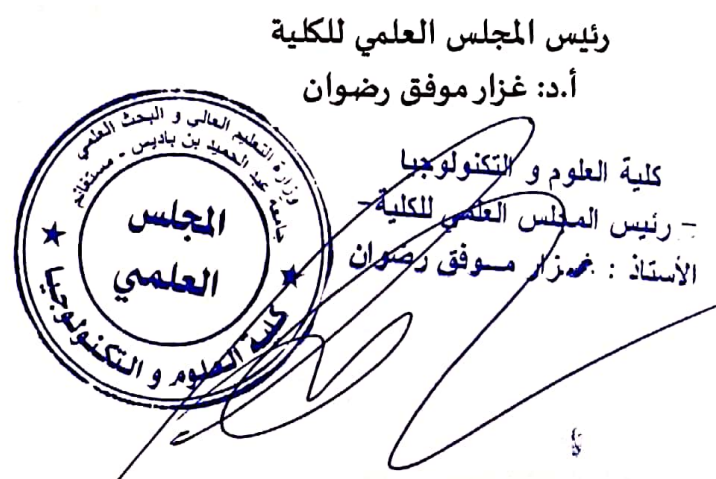 رئيس المجلس العلمي للكلية
أ.د: غزار موفق رضوان
كلية العلوم و التكنولوجيا
- رئيس المجلس العلمي للكلية -
الأستاذ : غزار موفق رضوان
وزارة التعليم العالي و البحث العلمي
جامعة عبد الحميد بن باديس - مستغانم
المجلس
العلمي
كلية العلوم و التكنولوجيا